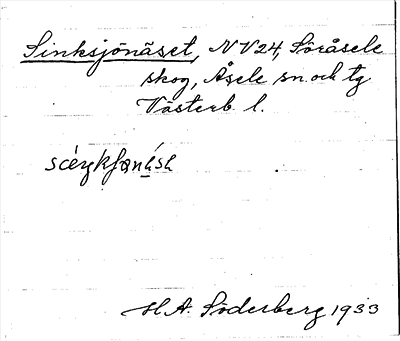 Sinksjönäset, NV24, Söråsele
skog, Åsele sn. och tg
Västerb. l.
H.A. Söderberg 1933